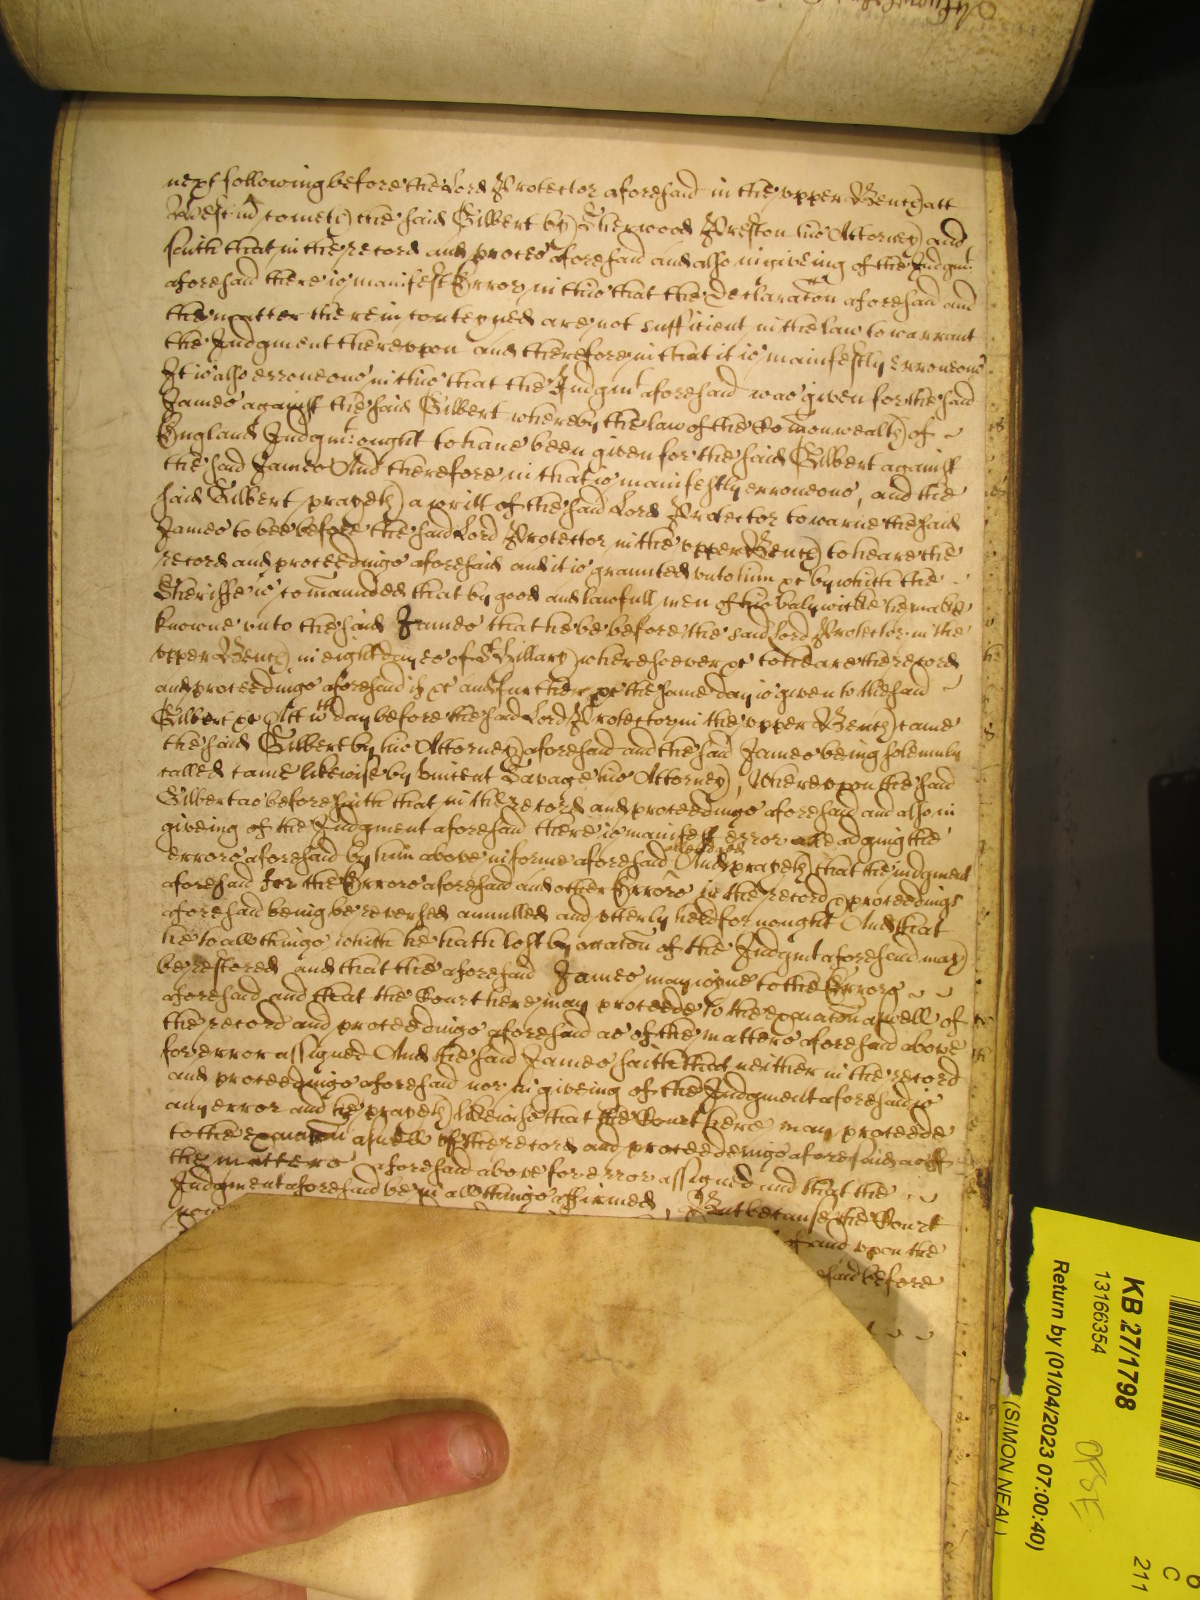 next following before the Lord Protector aforesaid in the upper Bench att
Westm cometh the said Gilbert by Sherwood Preston his Attorney and
saith that in the record and proces aforesaid and also in giveing of the Judgmt
aforesaid there is manifest Error in this that the Declaracon aforesaid and
the matter therein conteyned are not sufficient in the law to warrant
the Judgment thereupon and therefore in that it is mainfestly erroneous
It is also erroneous in this that the Judgmt aforesaid was given for the said
James against the said Gilbert whereby the law of the Comonwealth of
England Judgmt ought to have been given for the said Gilbert against
the said James And therefore in that is manifestly erroneous, and the
said Gilbert prayeth a writt of the said Lord Protector to warne the said
James to bee before the said Lord Protector in the upper Bench to heare the
record and proceedings aforesaid and it is graunted unto him &c by which the
Sheriffe is comaunded that by good and lawfull men of his baliwicke he make
knowne unto the said James that he be before the said Lord Protector in the
upper Bench in eight dayes of St Hillary wheresoever &c to heare the record
and proceedings aforesaid if &c and further &c the same day is given to the said
Gilbert &c Att wch day before the said Lord Protector in the upper Bench came
the said Gilbert by his Attorney aforesaid and the said James being solemnly
called came likewise by Vincent Savage his Attorney, Whereupon the said
Gilbert as before saith that in the record and proceedings aforesaid and also in
giveing of the Judgment aforesaid there is manifest error alleadging the
errors aforesaid by him above in forme aforesaid alleadged And prayeth that the iudgment
aforesaid for the Errors aforesaid and other Errors in the record & proceedings
aforesaid being be reversed annulled and utterly held for nought And that
he to all things which he hath lost by occacon of the Judgmt aforesaid may
be restored and that the aforesaid James may ioyne to the Errors
aforesaid and that the Court here may proceede to the exaiacon aswell of
the record and proceedings aforesaid as of the matters aforesaid above
for error assigned And the said James saith that neither in the record
and proceedings aforesaid nor in giveing of the Judgment aforesaid is
any error and he prayeth likewise that the Court here may proceede
to the exaiacon aswell of the record and proceedeings aforesaid as of
the matters aforesaid above for error assigned and that the
Judgment aforesaid be in all things affirmed, But because the Court
and upon the
said before
KB 27/1798
13166354
Return by (01/04/2023 07:00:40)
(SIMON NEAL)
C
211